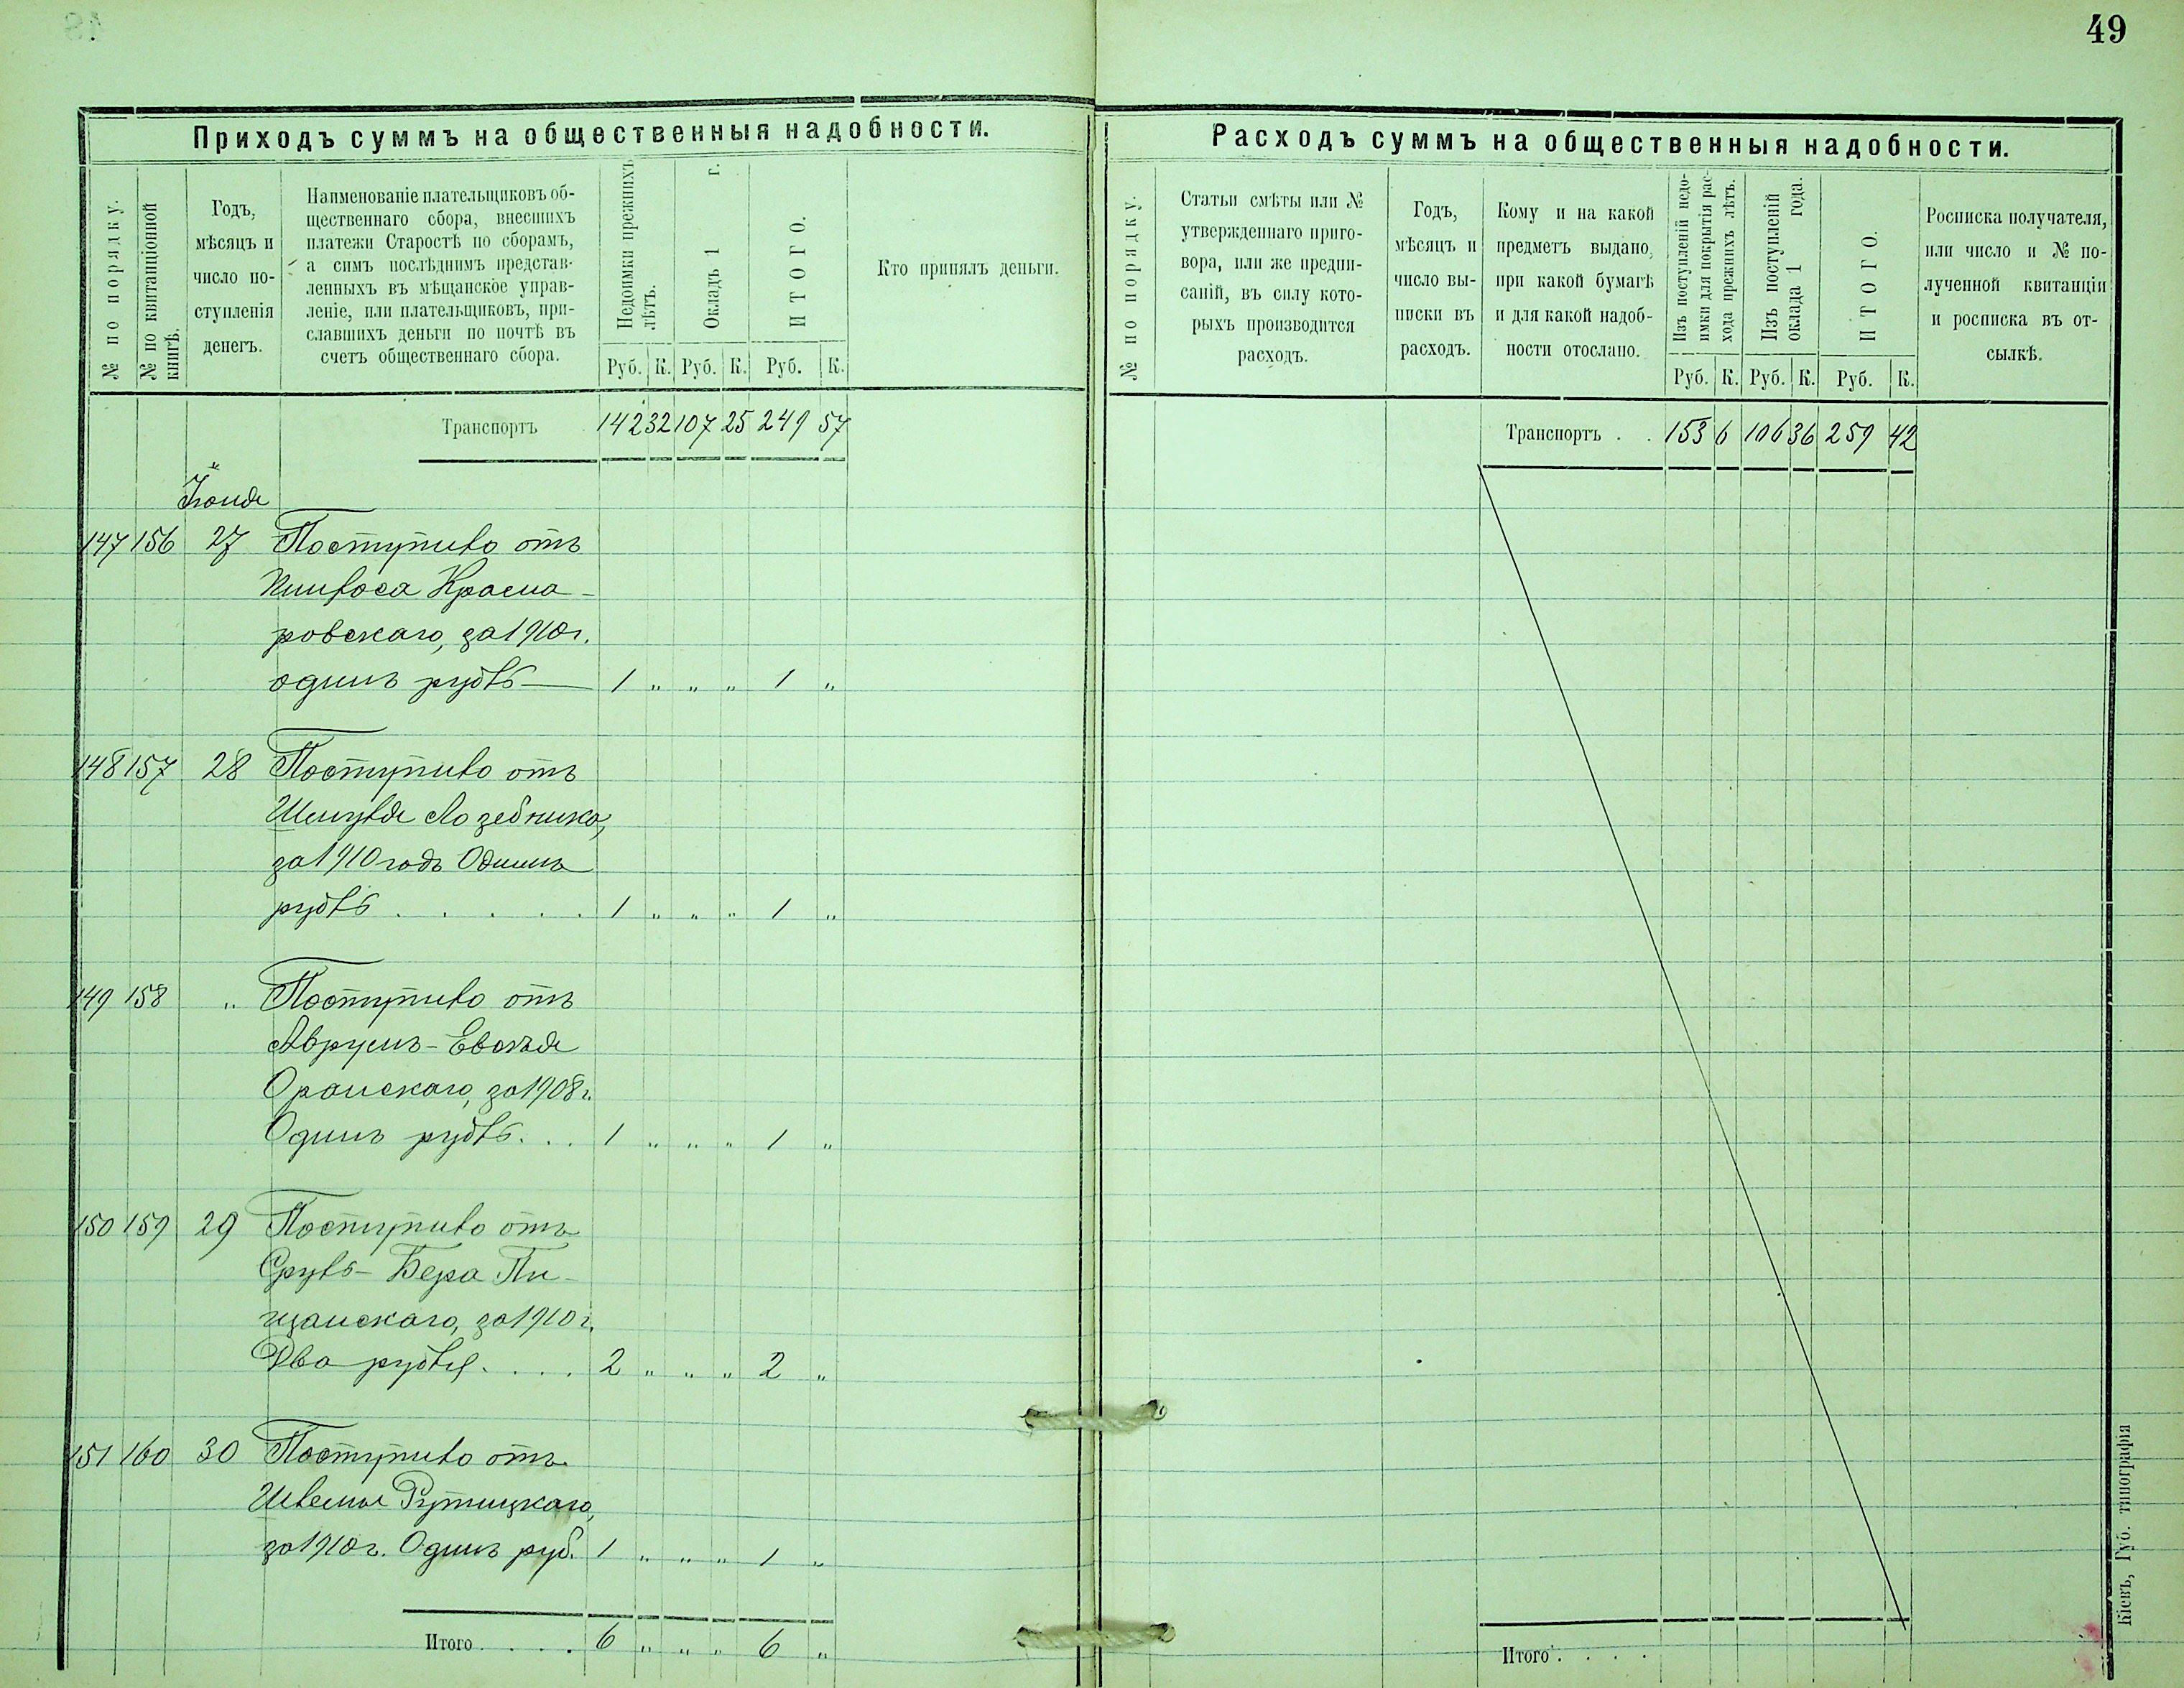 49
Приходъ суммъ на общественныя надобности.
№ по порядку.
№ по квитанціонной
книгѣ.
Годъ,
мѣсяцъ и
число по-
ступленія
денегъ.
Наименованіе плательщиковъ об-
щественнаго сбора, внесшихъ
платежи Старостѣ по сборамъ,
а симъ послѣднимъ представ-
ленныхъ въ мѣщанское управ-
леніе, или плательщиковъ, при-
славшихъ деньги по почтѣ въ
счетъ общественнаго сбора.
Недоимки прежнихъ
лѣтъ.
Окладъ 1 г.
ИТОГО.
Руб. К. Руб. К. Руб. К.
Кто принялъ деньги.
Транспортъ 142 32 107 25 249 57
Іюня
147 156 27 Поступило отъ
Пинхоса Красна-
ровскаго, за 1910 г.
одинъ рубль 1 „ „ „ 1 „
148 157 28 Поступило отъ
Шмуля Лозебника,
за 1910 годъ Одинъ
рубль . . . . . 1 „ „ „ 1 „
149 158 „ Поступило отъ
Аврумъ-
Оранскаго, за 1908 г.
Одинъ рубль. . . 1 „ „ „ 1 „
150 159 29 Поступило отъ
Сруль-Бера Пи-
щанскаго, за 1910 г.
Два рубля. . . . 2 „ „ „ 2 „
151 160 30 Поступило отъ
Шлемы Рутицкаго,
за 1910 г. Одинъ руб. 1 „ „ „ 1 „
Итого . . . . 6 „ „ „ 6 „
Расходъ суммъ на общественныя надобности.
№ по порядку.
Статьи смѣты или №
утвержденнаго приго-
вора, или же предпи-
саній, въ силу кото-
рыхъ производится
расходъ.
Годъ,
мѣсяцъ и
число вы-
писки въ
расходъ.
Кому и на какой
предметъ выдано,
при какой бумагѣ
и для какой надоб-
ности отослано.
Изъ поступленій недо-
имки для покрытія рас-
хода прежнихъ лѣтъ.
Изъ поступленій
оклада 1 года.
ИТОГО.
Руб. К. Руб. К. Руб. К.
Росписка получателя,
или число и № по-
лученной квитанціи
и росписка въ от-
сылкѣ.
Транспортъ . . 153 6 106 36 259 42
Итого . . . .
Кіевъ, Губ. типографія